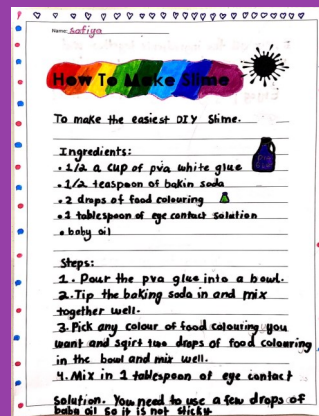 Name: Safiya
How To Make Slime
To make the easiest DIY Slime.
Ingredients:
• 1/2 a cup of pva white glue
• 1/2 teaspoon of bakin soda
• 2 drops of food colouring
• 1 tablespoon of eye contact solution
• baby oil
Steps:
1. Pour the pva glue into a bowl.
2. Tip the baking soda in and mix
together well.
3. Pick any colour of food colouring you
want and sqirt two drops of food colouring
in the bowl and mix well.
4. Mix in 1 tablespoon of eye contact
solution. You need to use a few drops of
baby oil so it is not sticky